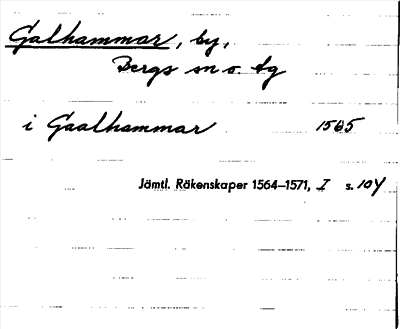 Galhammar, by,
Bergs sn o. tg
i Gaalhammar 1565
Jämtl. Räkenskaper 1564–1571, I s. 104